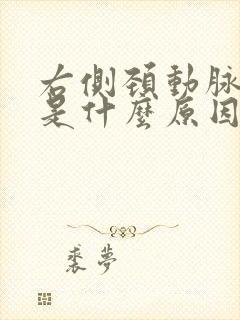 右側頚動脉
是什麼原因
裘夢